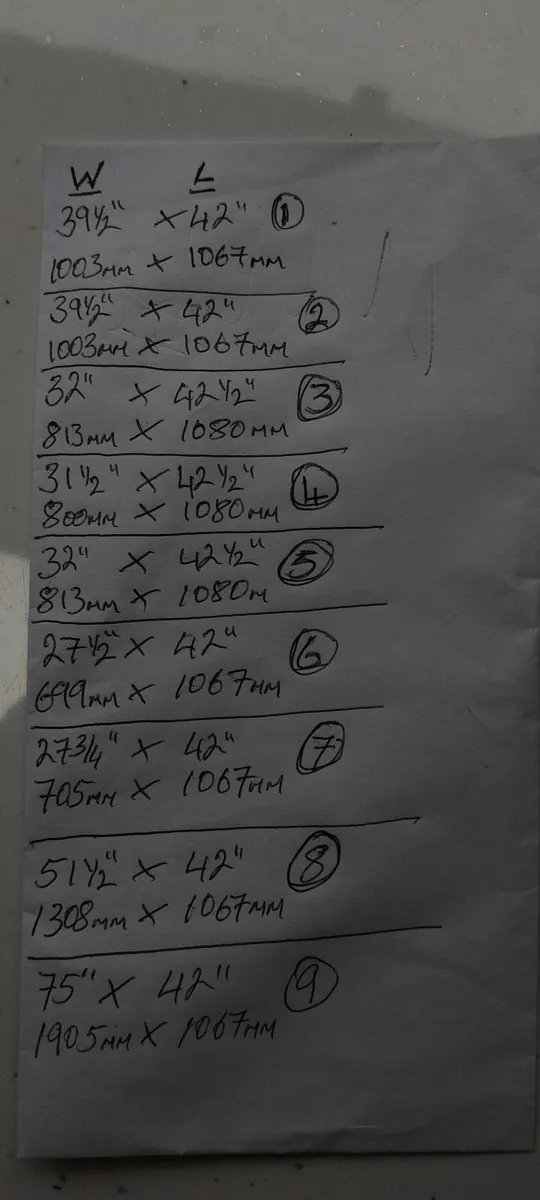 W L
39½" x 42" ①
1003mm x 1067mm
39½" x 42" ②
1003mm x 1067mm
32" x 42½" ③
813mm x 1080mm
31½" x 42½" ④
800mm x 1080mm
32" x 42½" ⑤
813mm x 1080m
27½" x 42" ⑥
699mm x 1067mm
27¾" x 42" ⑦
705mm x 1067mm
51½" x 42" ⑧
1308mm x 1067mm
75" x 42" ⑨
1905mm x 1067mm